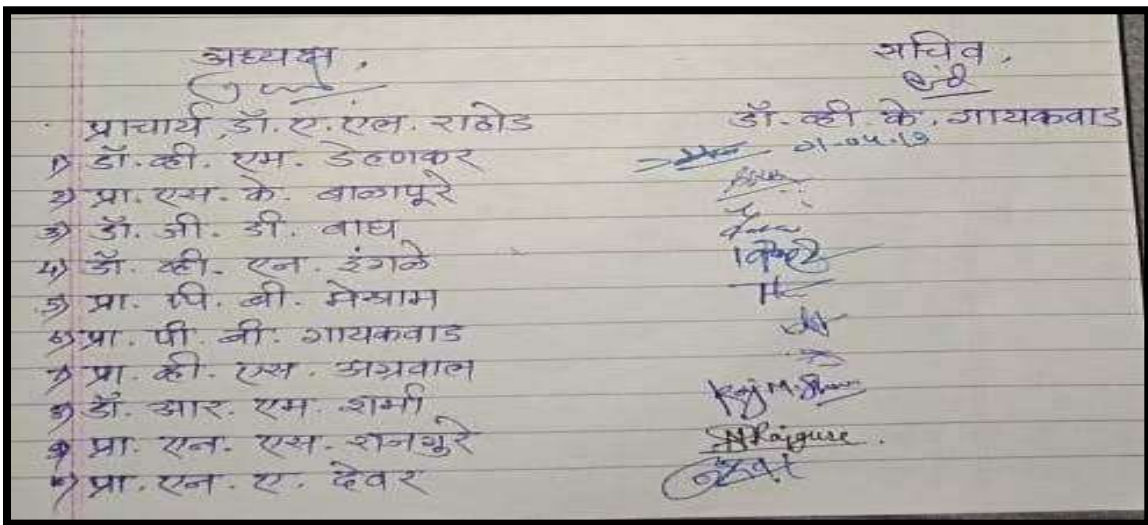 अध्यक्ष, सचिव,
प्राचार्य डॉ. ए. एल. राठोड डॉ. व्ही के. गायकवाड
1) डॉ. व्ही. एम. डेहणकर
2) प्रा. एस. के. बाळापूरे
3) डॉ. जी. डी. वाघ
4) डॉ. व्ही. एन. इंगळे
5) प्रा. पि. बी. मेश्राम
6) प्रा. पी. बी. गायकवाड
7) प्रा. व्ही. एस. अग्रवाल
8) डॉ. आर. एम. शर्मा Raj M. Sharma
9) प्रा. एन. एस. राजगूरे NRajgure.
10) प्रा. एन. ए. देवर